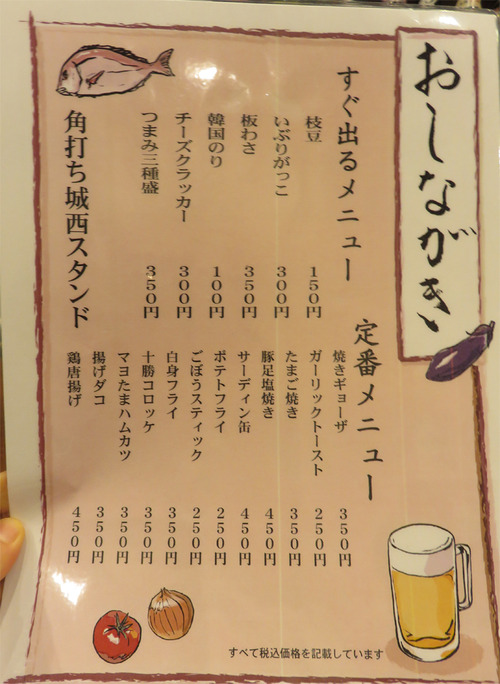 おしながき
すぐ出るメニュー
枝豆 150円
いぶりがっこ 300円
板わさ 350円
韓国のり 100円
チーズクラッカー 300円
つまみ三種盛 350円
角打ち城西スタンド
定番メニュー
焼きギョーザ 350円
ガーリックトースト 250円
たまご焼き 350円
豚足塩焼き 450円
サーディン缶 450円
ポテトフライ 250円
ごぼうスティック 250円
白身フライ 350円
十勝コロッケ 350円
マヨたまハムカツ 350円
揚げダコ 350円
鶏唐揚げ 450円
すべて税込価格を記載しています